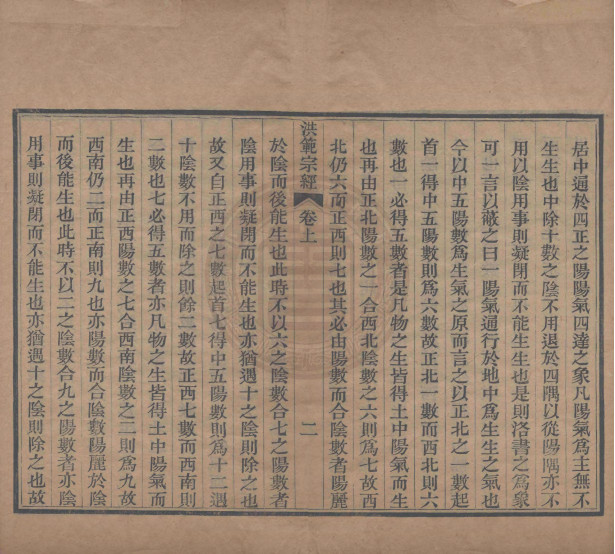 居中通於四正之陽陽氣四達之象凡陽氣爲主無不
生生也中除十數之陰不用退於四隅以從陽隅亦不
用以陰用事則凝閉而不能生生也是則洛書之爲象
可一言以蔽之曰一陽氣通行於地中爲生生之氣也
今以中五陽數爲生氣之原而言之以正北之一數起
首一得中五陽數則爲六數故正北一數而西北則六
數也一必得五數者是凡物之生皆得土中陽氣而生
也再由正北陽數之一合西北陰數之六則爲七故西
北仍六而正西則七也其必由陽數而合陰數者陽麗
洪範宗經
卷上
二
於陰而後能生也此時不以六之陰數合七之陽數者
陰用事則凝閉而不能生也亦猶遇十之陰則除之也
故又自正西之七數起首七得中五陽數則爲十二遇
十陰數不用而除之則餘二數故正西七數而西南則
二數也七必得五數者亦凡物之生皆得土中陽氣而
生也再由正西陽數之七合西南陰數之二則爲九故
西南仍二而正南則九也亦陽數而合陰數陽麗於陰
而後能生也此時不以二之陰數合九之陽數者亦陰
用事則凝閉而不能生也亦猶遇十之陰則除之也故